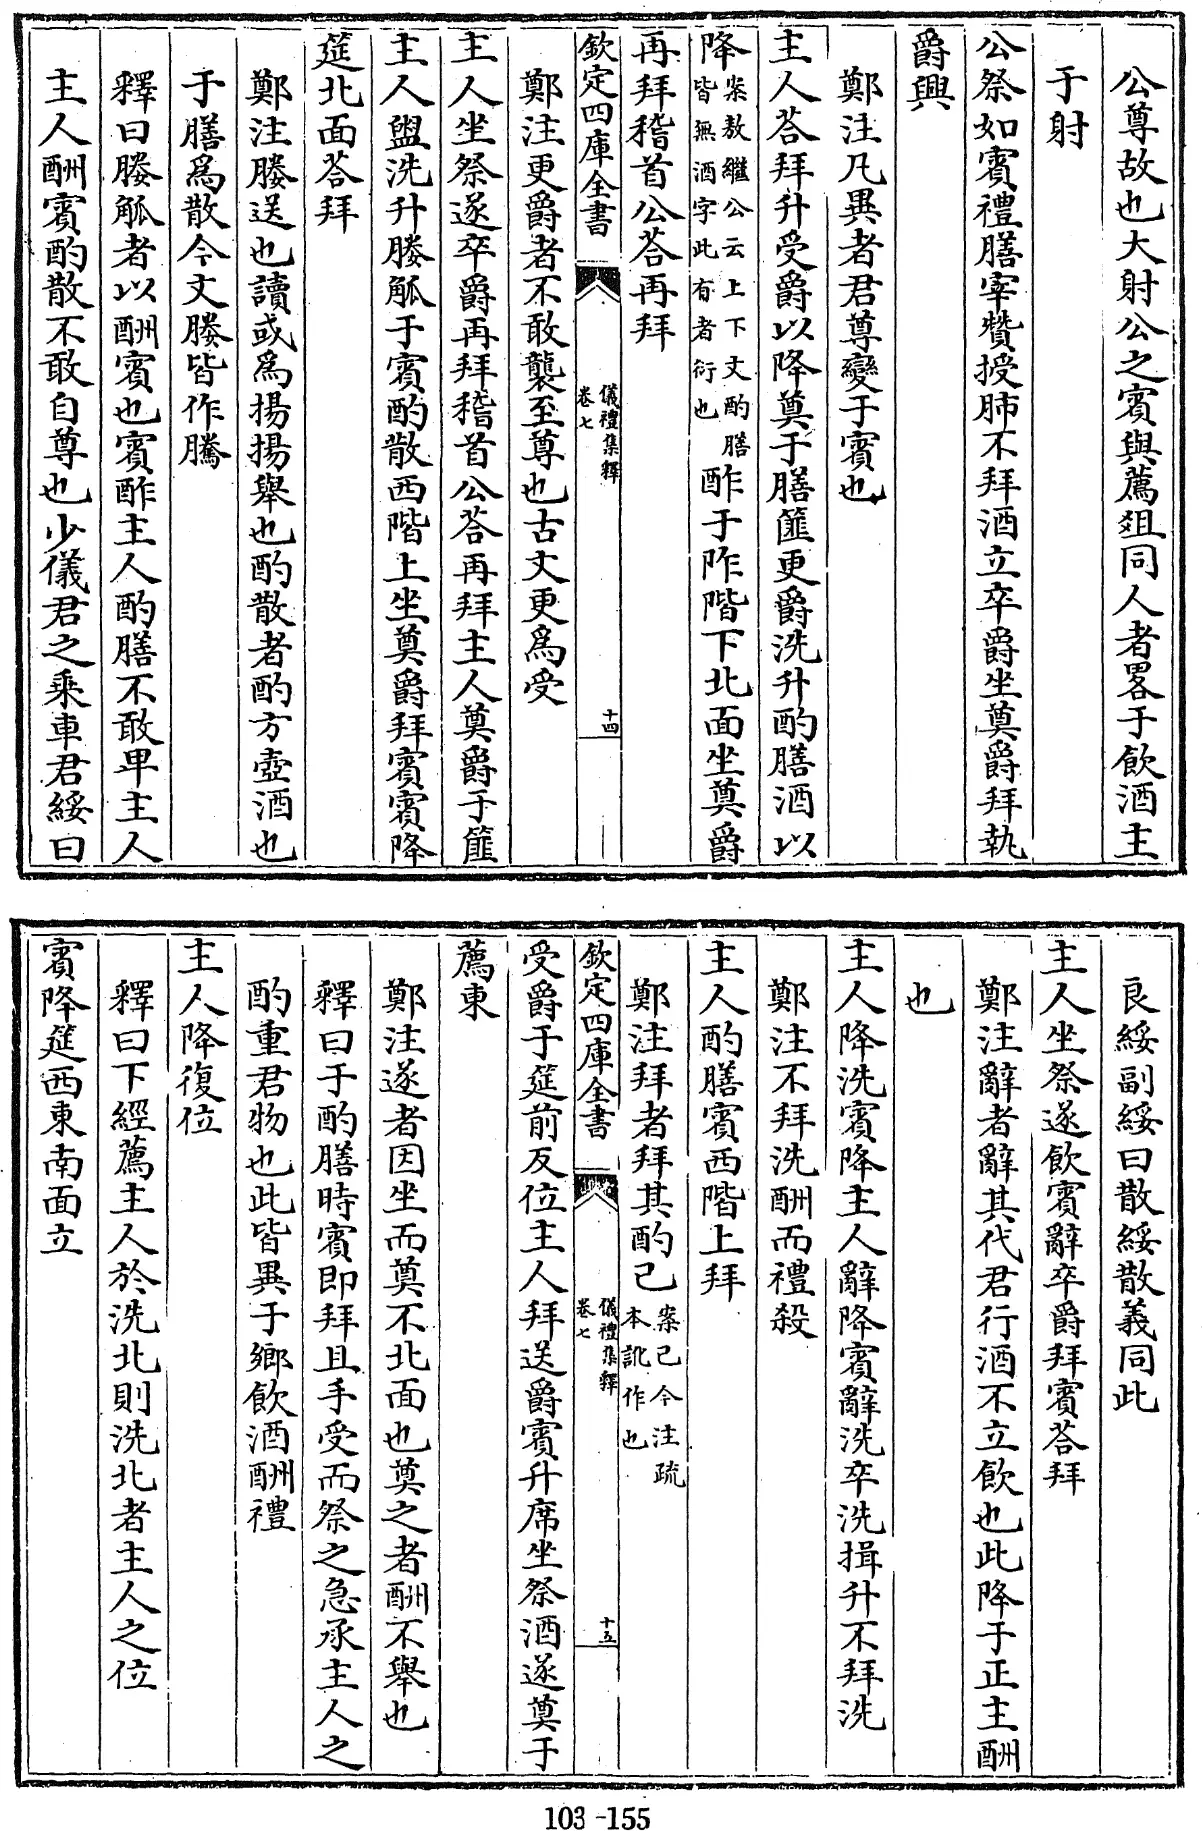 公尊故也大射公之賓與薦俎同人者畧于飲酒主
于射
公祭如賓禮膳宰贊授肺不拜酒立卒爵坐奠爵拜執
爵興
鄭注凡異者君尊變于賓也
主人荅拜升受爵以降奠于膳篚更爵洗升酌膳酒以
降案敖繼公云上下文酌膳皆無酒字此有者衍也酢于阼階下北面坐奠爵
再拜稽首公荅再拜
欽定四庫全書 儀禮集釋 卷七 十四
鄭注更爵者不敢襲至尊也古文更為受
主人坐祭遂卒爵再拜稽首公荅再拜主人奠爵于篚
主人盥洗升媵觚于賓酌散西階上坐奠爵拜賓賓降
筵北面荅拜
鄭注媵送也讀或為揚揚舉也酌散者酌方壺酒也
于膳為散今文媵皆作騰
釋曰媵觚者以酬賓也賓酢主人酌膳不敢卑主人
主人酬賓酌散不敢自尊也少儀君之乘車君綏曰
良綏副綏曰散綏散義同此
主人坐祭遂飲賓辭卒爵拜賓荅拜
鄭注辭者辭其代君行酒不立飲也此降于正主酬
也
主人降洗賓降主人辭降賓辭洗卒洗揖升不拜洗
鄭注不拜洗酬而禮殺
主人酌膳賓西階上拜
鄭注拜者拜其酌己案己今注疏本訛作也
欽定四庫全書 儀禮集釋 卷七 十五
受爵于筵前反位主人拜送爵賓升席坐祭酒遂奠于
薦東
鄭注遂者因坐而奠不北面也奠之者酬不舉也
釋曰于酌膳時賓即拜且手受而祭之急承主人之
酌重君物也此皆異于鄉飲酒酬禮
主人降復位
釋曰下經薦主人於洗北則洗北者主人之位
賓降筵西東南面立
103-155